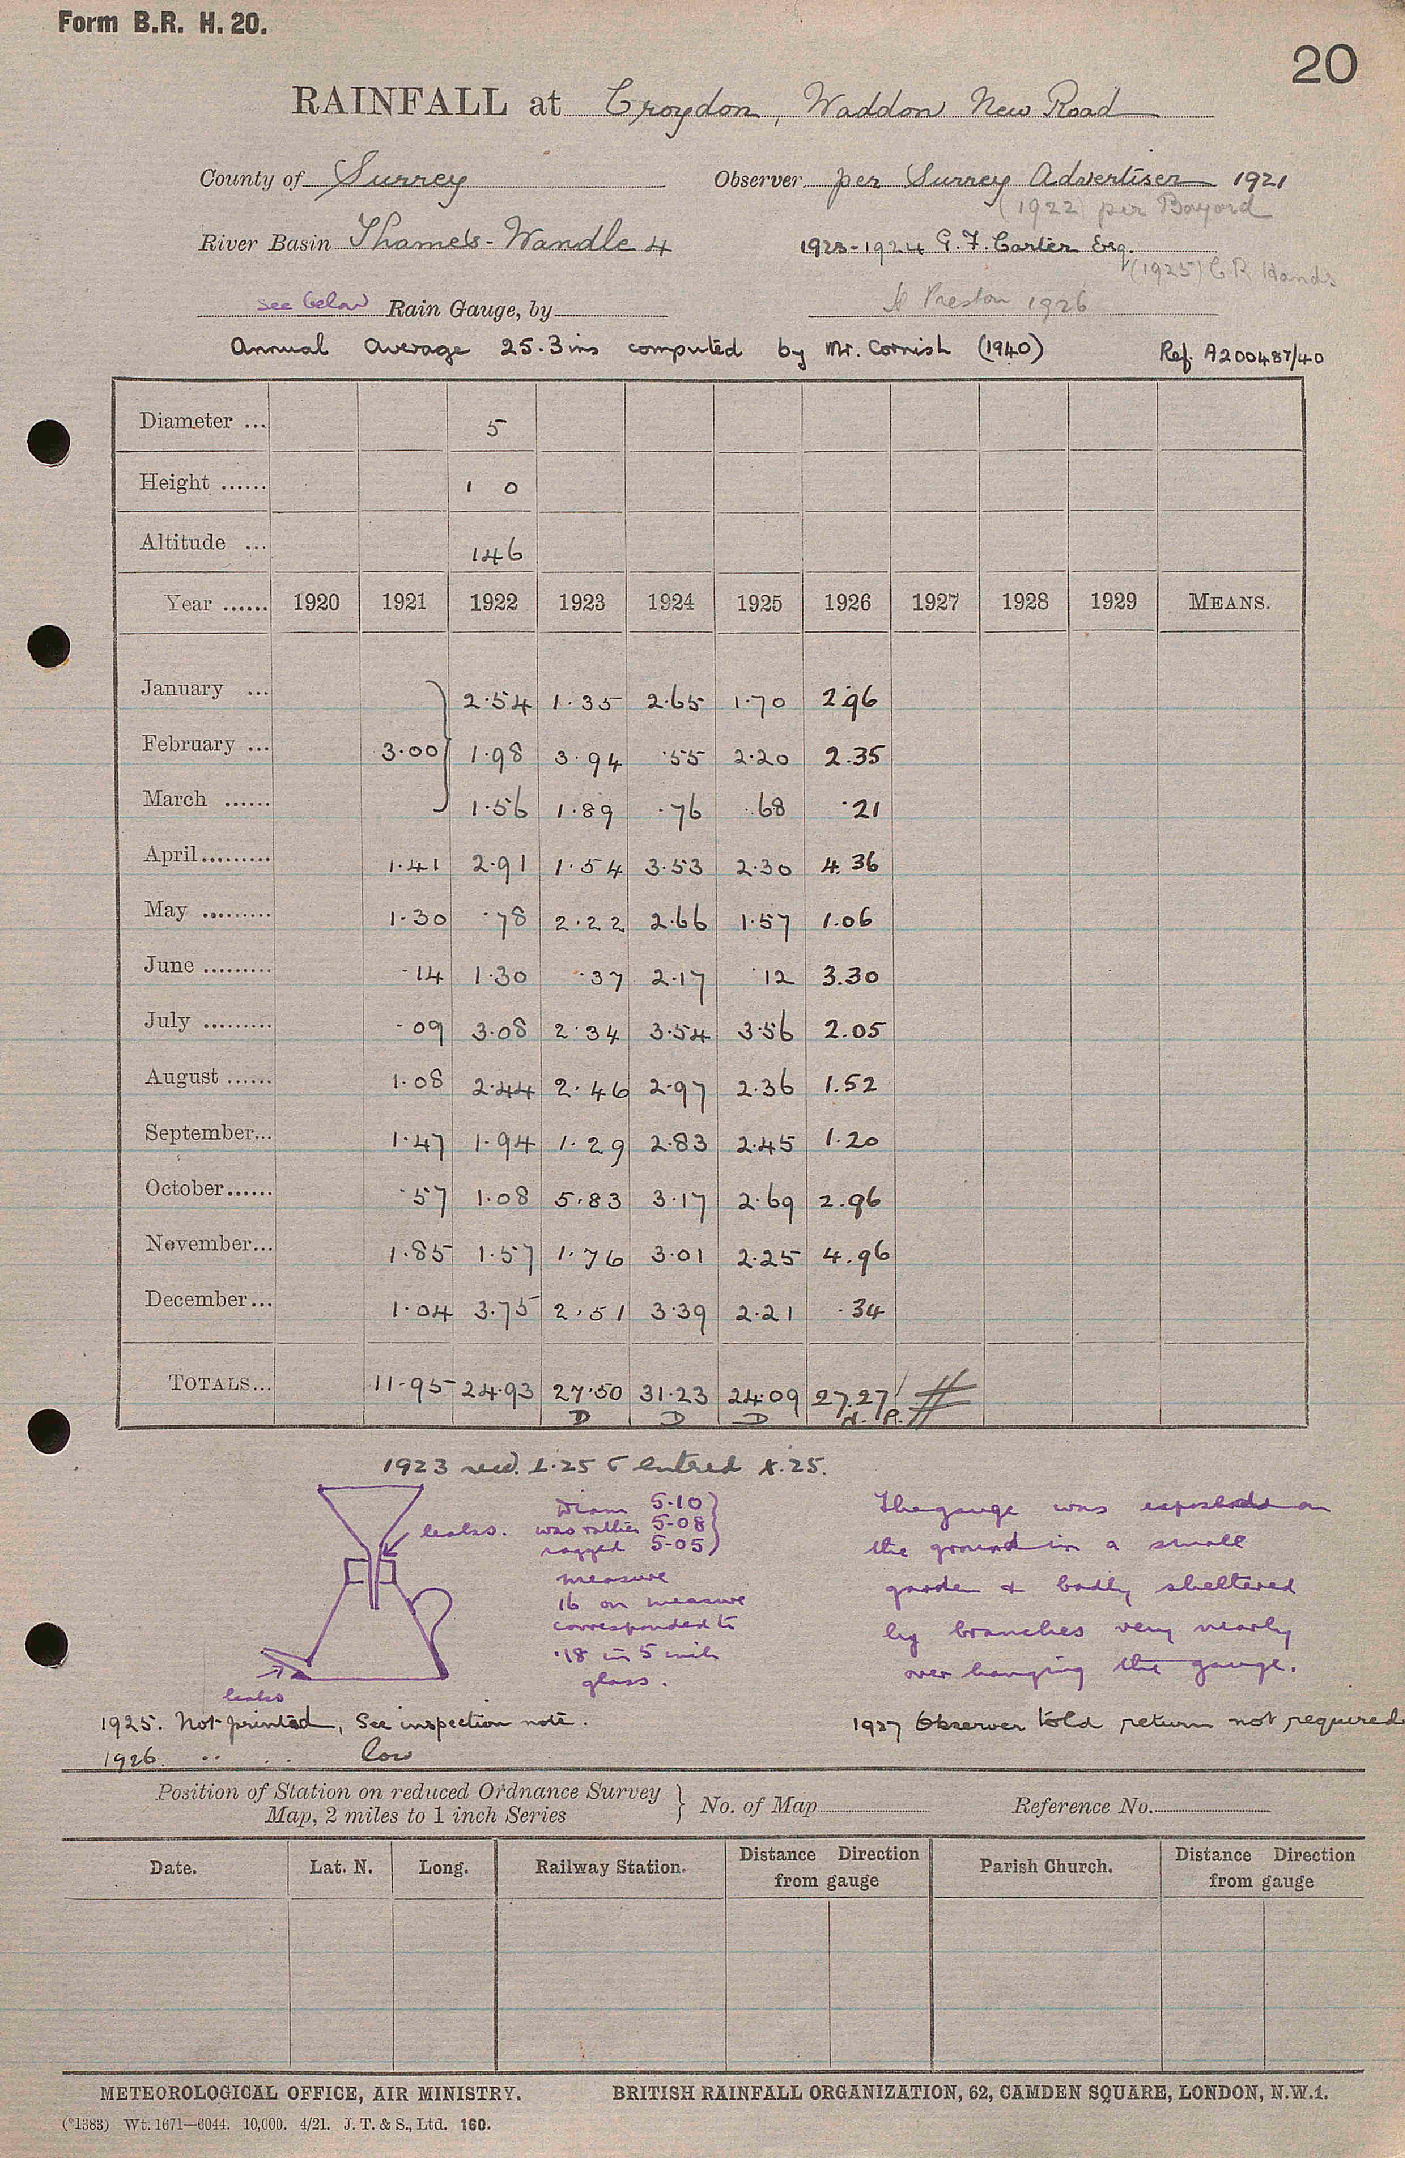 Form B.R. H. 20.
20
RAINFALL at Croydon, Waddon New Road
County of Surrey Observer per Surrey Advertiser 1921
(1922) per Bayard
River Basin Thames - Wandle 4 1923-1924 G. F. Carter Esq.
(1925) C R Hands
see below Rain Gauge, by Preston 1926
Annual Average 25.3 ins computed by Mr. Cornish (1940) Ref. A200487/40
Diameter ... 5
Height ...... 1 0
Altitude ... 146
Year ...... 1920 1921 1922 1923 1924 1925 1926 1927 1928 1929 MEANS.
January ... 2.54 1.35 2.65 1.70 2.96
February ... 3.00 } 1.98 3.94 .55 2.20 2.35
March ...... 1.56 1.89 .76 .68 .21
April......... 1.41 2.91 1.54 3.53 2.30 4.36
May ......... 1.30 .78 2.22 2.66 1.57 1.06
June ......... .14 1.30 .37 2.17 .12 3.30
July ......... .09 3.08 2.34 3.54 3.56 2.05
August ...... 1.08 2.44 2.46 2.97 2.36 1.52
September... 1.47 1.94 1.29 2.83 2.45 1.20
October...... .57 1.08 5.83 3.17 2.69 2.96
November... 1.85 1.57 1.76 3.01 2.25 4.96
December... 1.04 3.75 2.51 3.39 2.21 .34
TOTALS... 11.95 24.93 27.50 31.23 24.09 27.27
D D D H. P.
1923 recd. entered
leaks.
Diam 5.10 }
was rather 5.08
ragged 5.05 }
measure
16 on measure
corresponded to
.18 in 5 inch
glass.
leaks
The gauge was exposed on
the ground in a small
garden & badly sheltered
by branches very nearly
over hanging the gauge.
1925. Not printed, See inspection note. 1927 Observer told return not required
1926. " " low
Position of Station on reduced Ordnance Survey
Map, 2 miles to 1 inch Series } No. of Map Reference No.
Date. Lat. N. Long. Railway Station. Distance Direction from gauge Parish Church. Distance Direction from gauge
METEOROLOGICAL OFFICE, AIR MINISTRY. BRITISH RAINFALL ORGANIZATION, 62, CAMDEN SQUARE, LONDON, N.W.1.
(*1383) Wt. 1671—6044. 10,000. 4/21. J. T. & S., Ltd. 160.